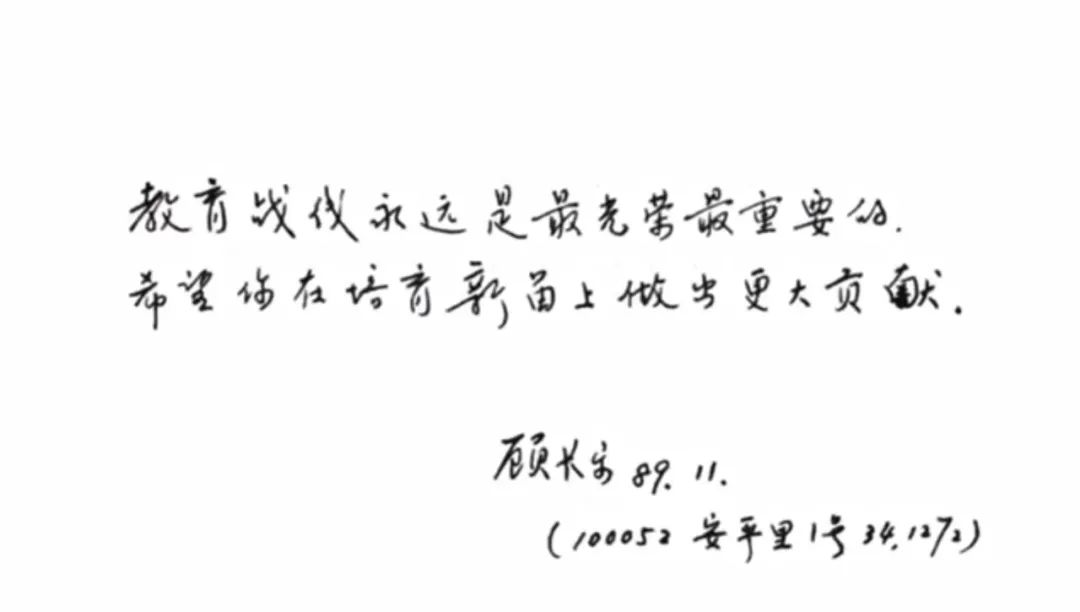 教育战线永远是最光荣最重要的.
希望你在培育新苗上做出更大贡献.
顾长 89.11.
(100052 安平里1号 34.1272)